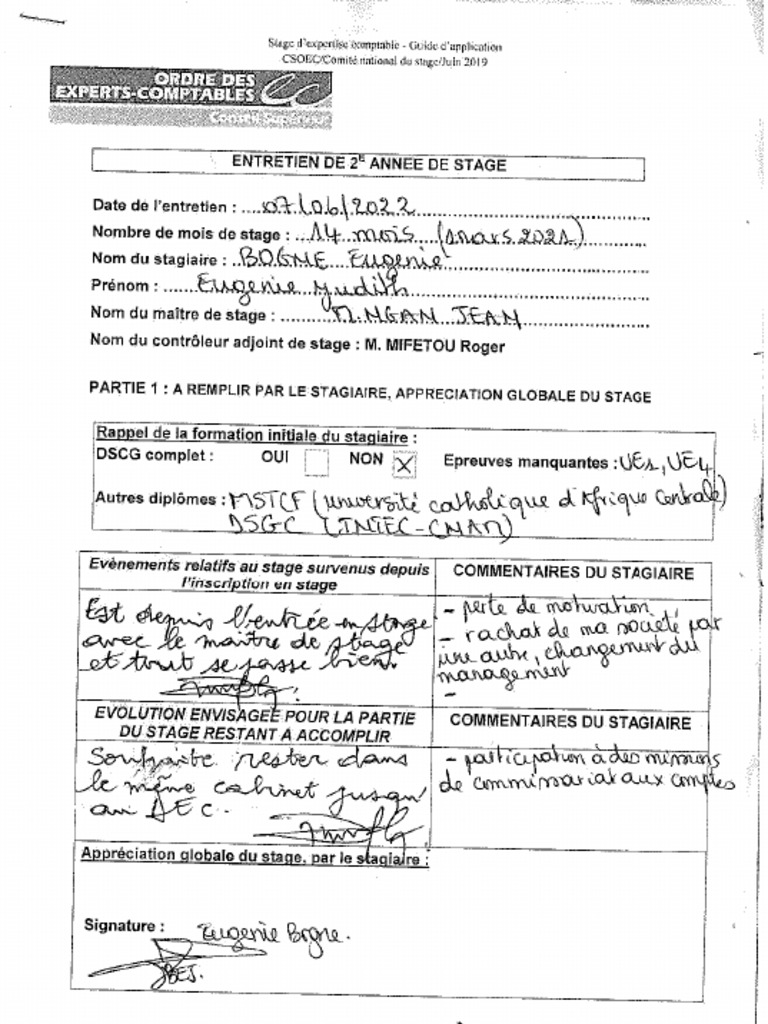 Stage d'expertise comptable - Guide d'application
CSOEC/Comité national du stage/Juin 2019
ORDRE DES
EXPERTS-COMPTABLES
Conseil Supérieur
ENTRETIEN DE 2E ANNEE DE STAGE
Date de l'entretien : 07/06/2022
Nombre de mois de stage : 14 mois (1 mars 2021)
Nom du stagiaire : BOGNE Eugenie
Prénom : Eugenie Judith
Nom du maître de stage : M. NGAN JEAN
Nom du contrôleur adjoint de stage : M. MIFETOU Roger
PARTIE 1 : A REMPLIR PAR LE STAGIAIRE, APPRECIATION GLOBALE DU STAGE
Rappel de la formation initiale du stagiaire :
DSCG complet : OUI NON X Epreuves manquantes : UE1, UE4
Autres diplômes : MSTCF (université catholique d'Afrique Centrale)
DSGC (INTEC-CNAM)
Evènements relatifs au stage survenus depuis
l'inscription en stage
COMMENTAIRES DU STAGIAIRE
Est depuis l'entrée en stage
avec le maître de stage
et tout se passe bien.
- perte de motivation
- rachat de ma société par
une autre, changement du
management
-
EVOLUTION ENVISAGEE POUR LA PARTIE
DU STAGE RESTANT A ACCOMPLIR
COMMENTAIRES DU STAGIAIRE
Souhaite rester dans
le même cabinet jusqu'
au DEC.
- participation à des missions
de commissariat aux comptes
Appréciation globale du stage, par le stagiaire :
Signature : Eugenie Bogne.
BEJ.